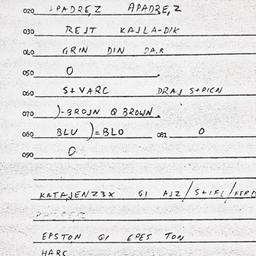 020 APADRE,Z
030 REJT KAJLA-DIK
040 GRIN DIN DA,R
050 O
060 S+VARC DRAJ S+PICN
070 )-BROJN @ BROWN.
080 BLU )=BLO 081 O
090 O
KATAJENZ3X GI AJZ/S+IFL/
EPSTON GI EPES TON
HARC